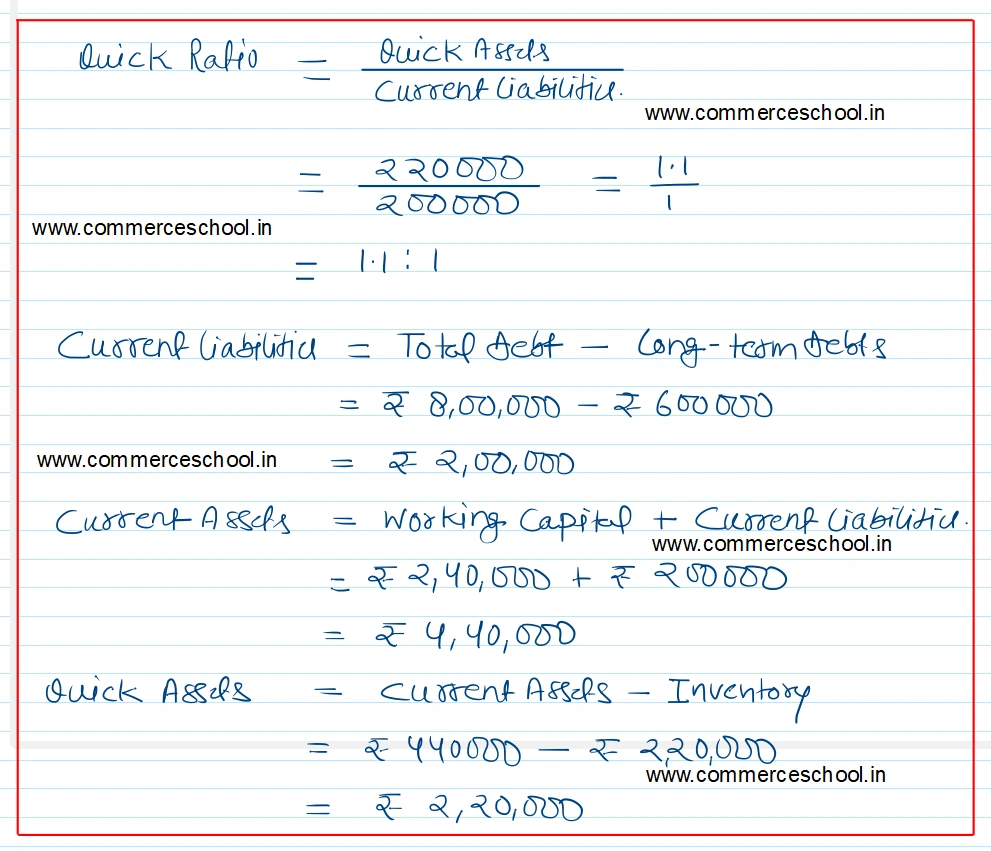 Quick Ratio = Quick Assets
Current Liabilities.
www.commerceschool.in
= 220000 = 1.1
200000 1
www.commerceschool.in
= 1.1 : 1
Current Liabilities = Total debt - Long-term debts
= ₹ 8,00,000 - ₹ 600000
www.commerceschool.in = ₹ 2,00,000
Current Assets = Working Capital + Current Liabilities.
www.commerceschool.in
= ₹ 2,40,000 + ₹ 200000
= ₹ 4,40,000
Quick Assets = Current Assets - Inventory
= ₹ 440000 - ₹ 2,20,000
www.commerceschool.in
= ₹ 2,20,000